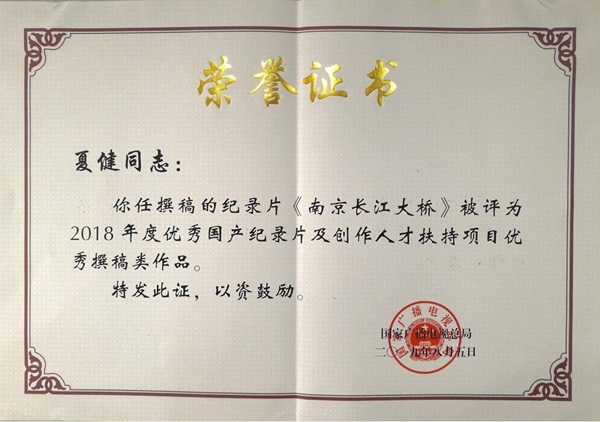 荣誉证书
夏健同志：
你任撰稿的纪录片《南京长江大桥》被评为
2018年度优秀国产纪录片及创作人才扶持项目优
秀撰稿类作品。
特发此证，以资鼓励。
国家广播电视总局
二〇一九年八月五日
国家广播电视总局